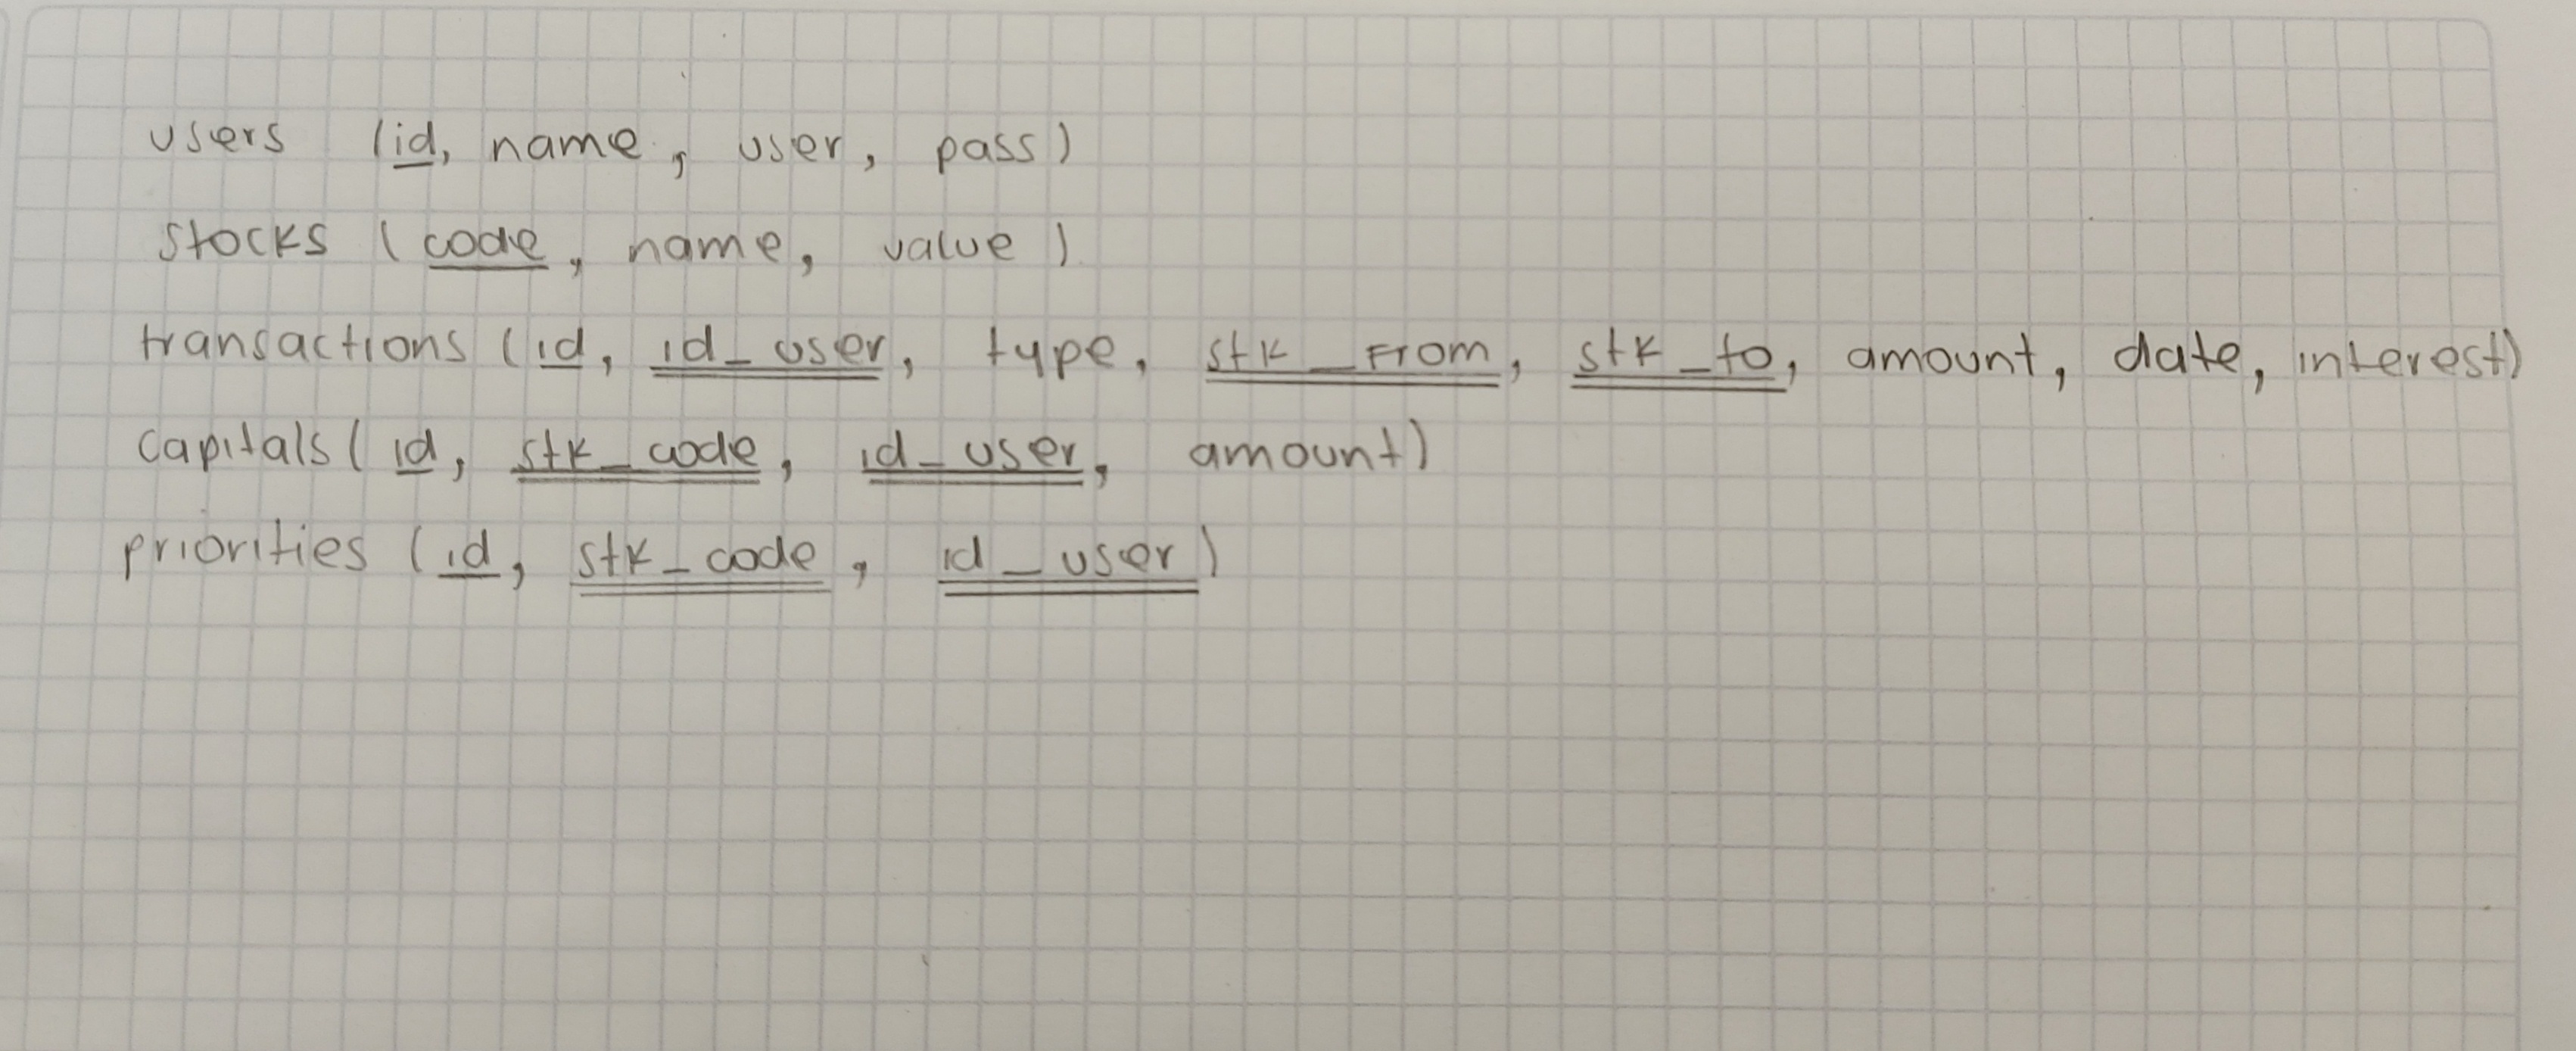 users (id, name, user, pass)
stocks (code, name, value)
transactions (id, id_user, type, stk_from, stk_to, amount, date, interest)
capitals (id, stk_code, id_user, amount)
priorities (id, stk_code, id_user)